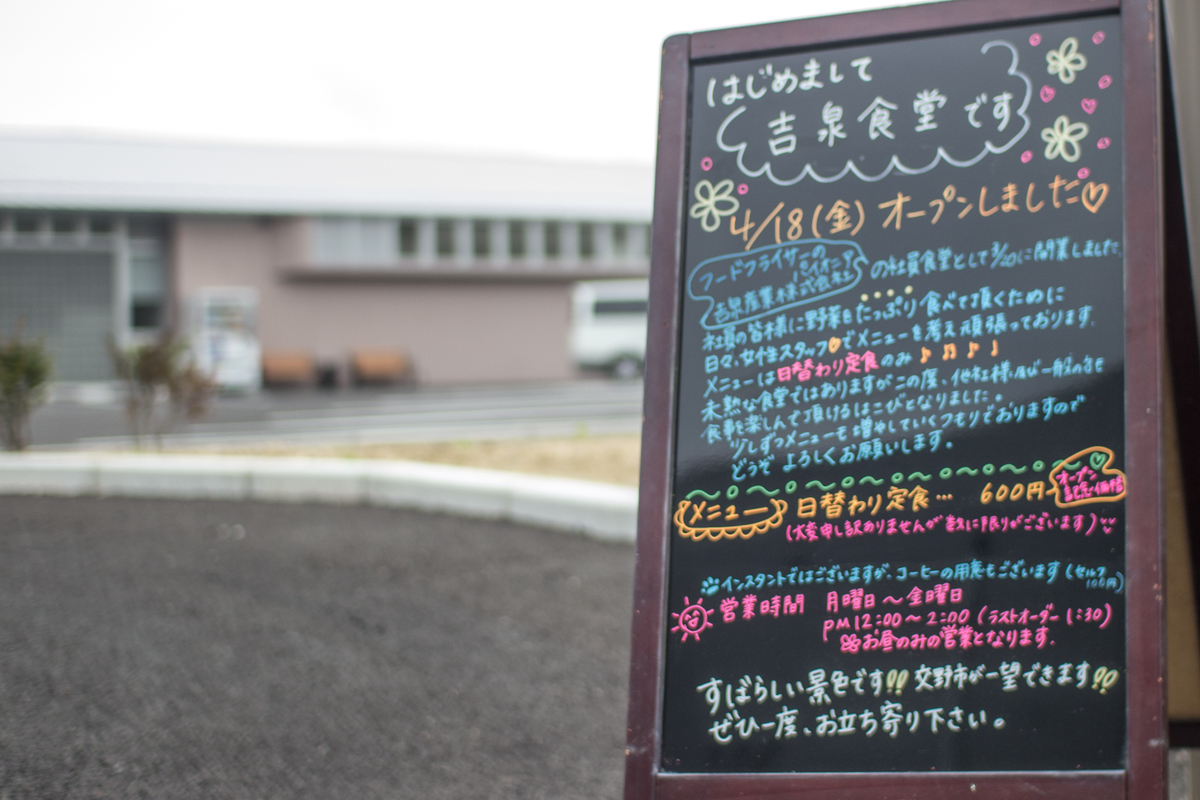 はじめまして
吉泉食堂です
4/18(金) オープンしました
フードフライヤーの
パイオニア
吉泉産業株式会社
の社員食堂として3/20に開業しました。
社員の皆様に野菜をたっぷり食べて頂くために
日々、女性スタッフでメニューを考え頑張っております。
メニューは日替わり定食のみ♪♫♪♩
未熟な食堂ではありますがこの度、他社様及び一般の方も
食事を楽しんで頂けるはこびとなりました。
少しずつメニューも増やしていくつもりでおりますので
どうぞ よろしくお願いします。
メニュー 日替わり定食… 600円
オープン
記念価格
(大変申し訳ありませんが数に限りがございます)
インスタントではございますが、コーヒーの用意もございます(セルフ
100円)
営業時間 月曜日〜金曜日
PM12:00〜2:00(ラストオーダー1:30)
お昼のみの営業となります。
すばらしい景色です!! 交野市が一望できます!!
ぜひ一度、お立ち寄り下さい。